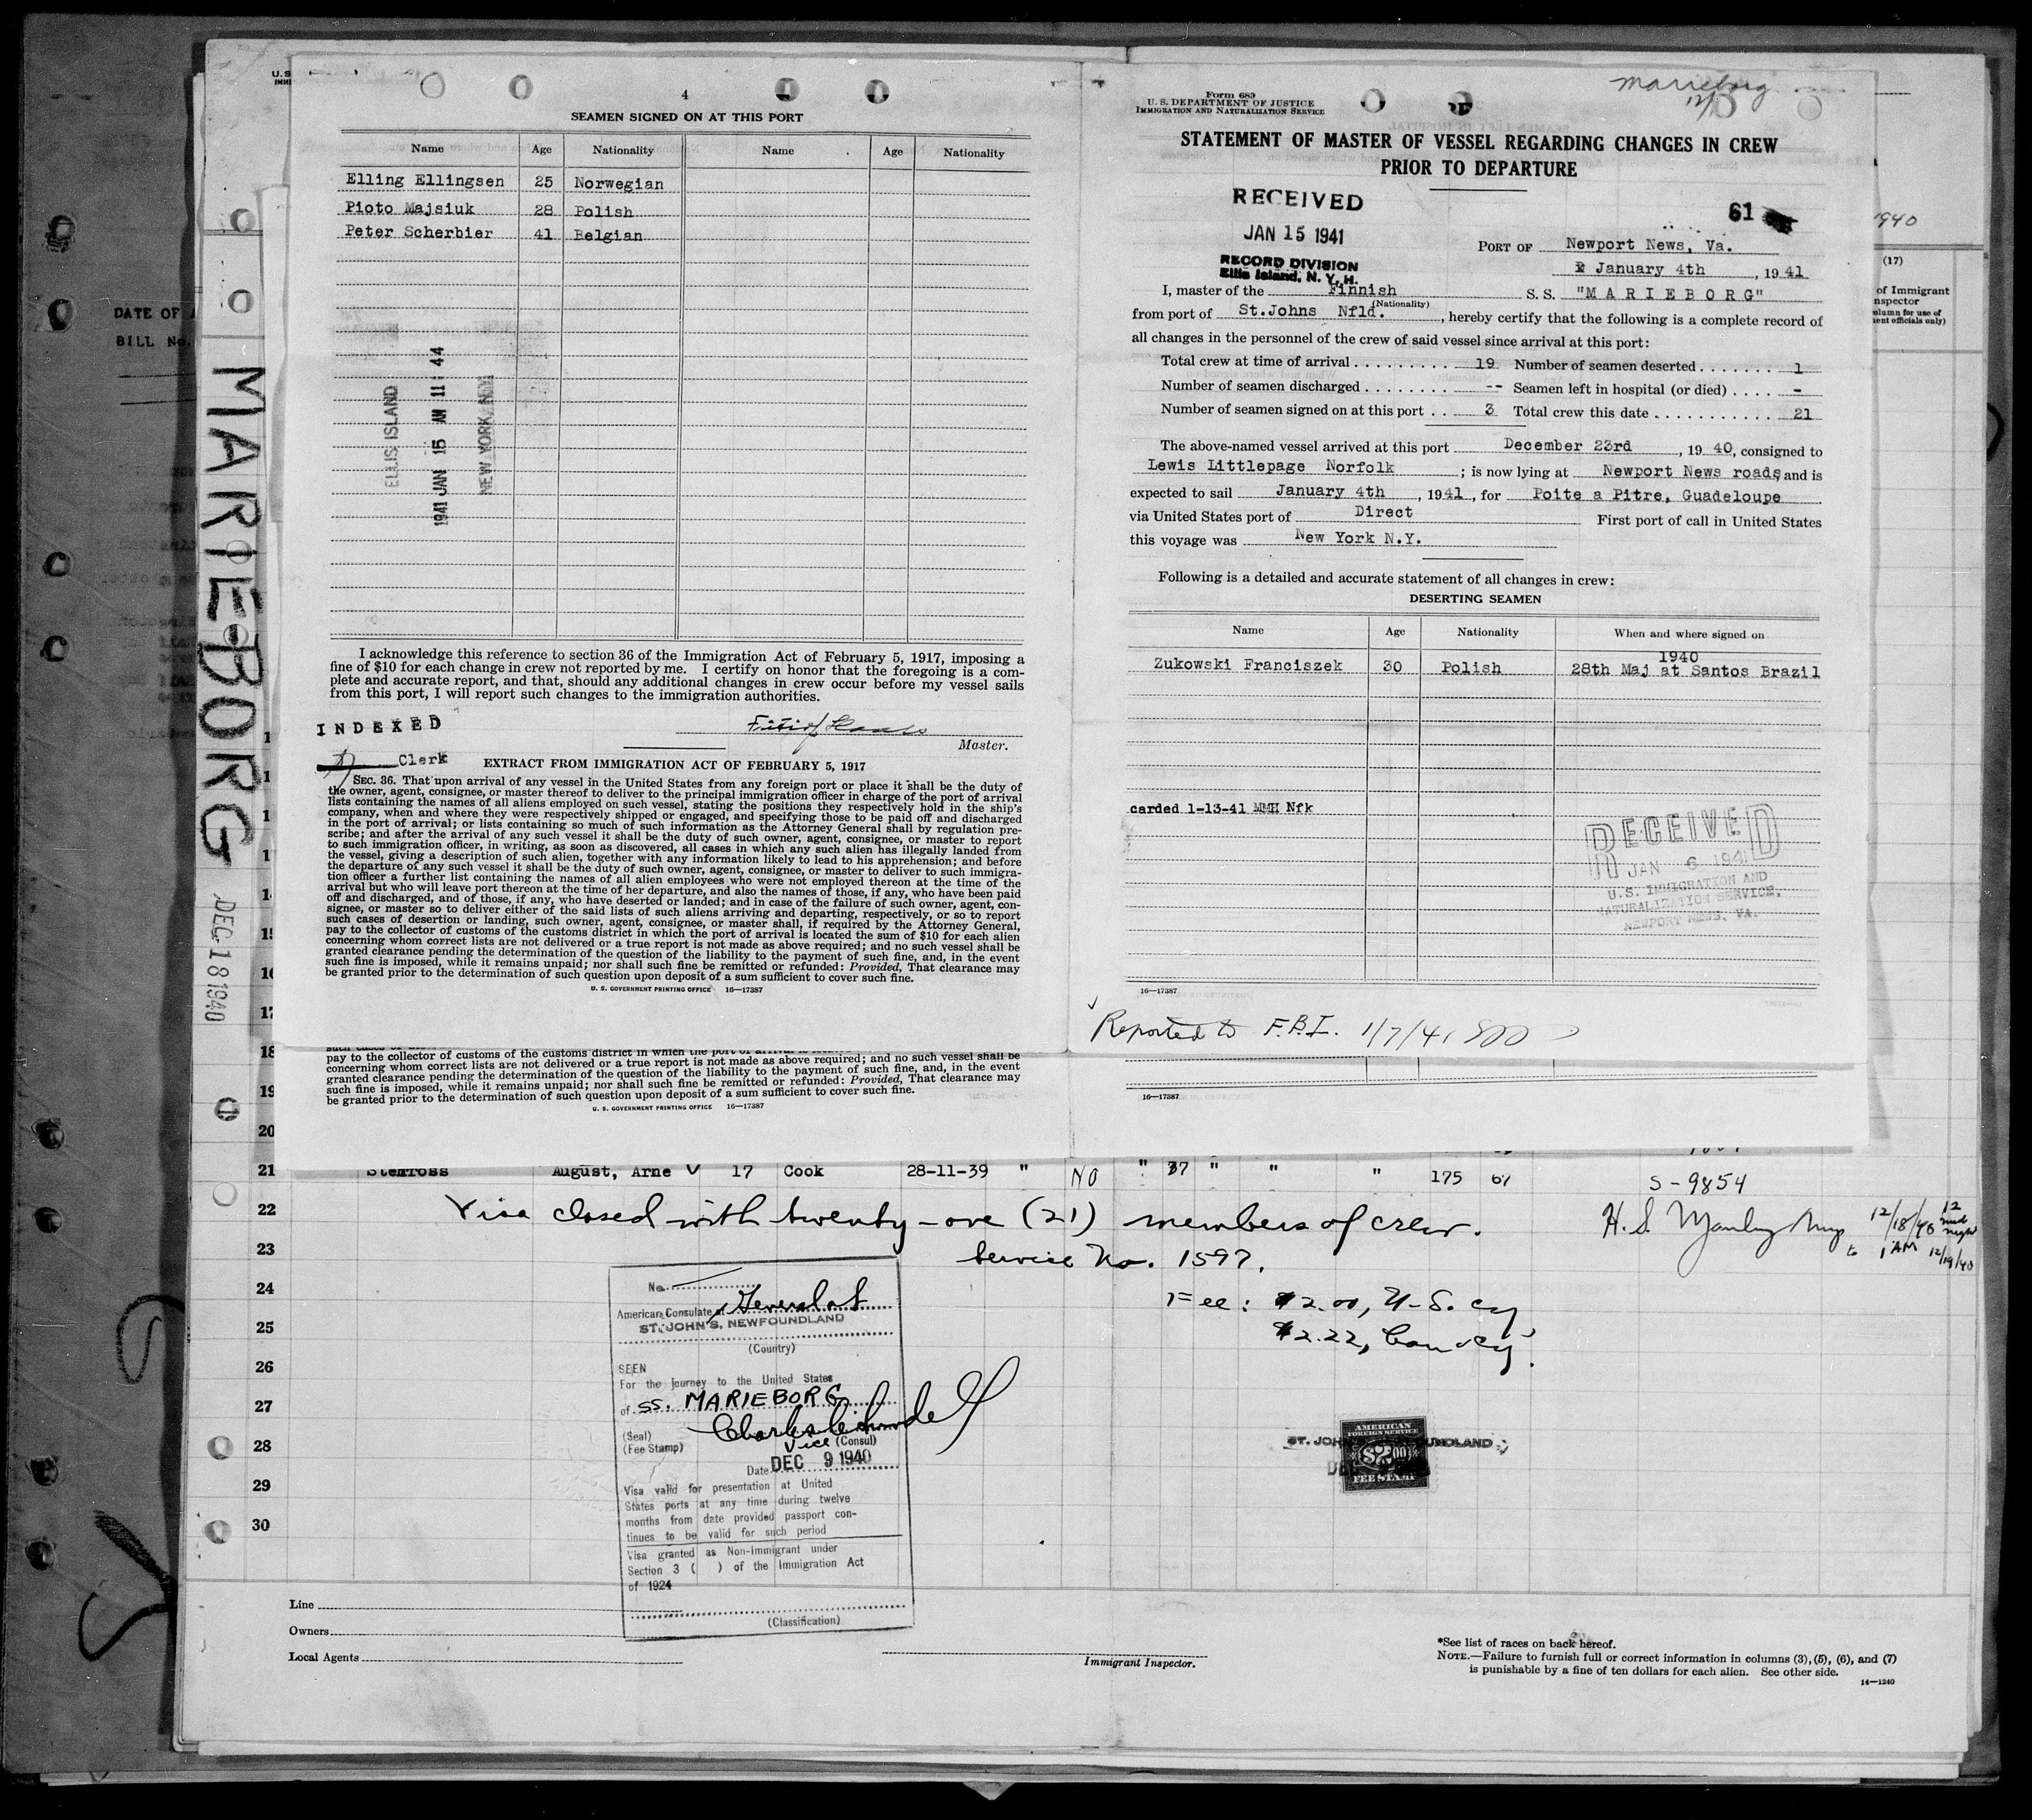 U.S
IMMI
4
SEAMEN SIGNED ON AT THIS PORT
Name Age Nationality Name Age Nationality
Elling Ellingsen 25 Norwegian
Pioto Majsiuk 28 Polish
Peter Scherbier 41 Belgian
ELLIS ISLAND
1941 JAN 15 AM 11 44
NEW YORK
I acknowledge this reference to section 36 of the Immigration Act of February 5, 1917, imposing a
fine of $10 for each change in crew not reported by me. I certify on honor that the foregoing is a com-
plete and accurate report, and that, should any additional changes in crew occur before my vessel sails
from this port, I will report such changes to the immigration authorities.
INDEXED
Master.
Clerk
EXTRACT FROM IMMIGRATION ACT OF FEBRUARY 5, 1917
SEC. 36. That upon arrival of any vessel in the United States from any foreign port or place it shall be the duty of
the owner, agent, consignee, or master thereof to deliver to the principal immigration officer in charge of the port of arrival
lists containing the names of all aliens employed on such vessel, stating the positions they respectively hold in the ship's
company, when and where they were respectively shipped or engaged, and specifying those to be paid off and discharged
in the port of arrival; or lists containing so much of such information as the Attorney General shall by regulation pre-
scribe; and after the arrival of any such vessel it shall be the duty of such owner, agent, consignee, or master to report
to such immigration officer, in writing, as soon as discovered, all cases in which any such alien has illegally landed from
the vessel, giving a description of such alien, together with any information likely to lead to his apprehension; and before
the departure of any such vessel it shall be the duty of such owner, agent, consignee, or master to deliver to such immigra-
tion officer a further list containing the names of all alien employees who were not employed thereon at the time of the
arrival but who will leave port thereon at the time of her departure, and also the names of those, if any, who have been paid
off and discharged, and of those, if any, who have deserted or landed; and in case of the failure of such owner, agent, con-
signee, or master so to deliver either of the said lists of such aliens arriving and departing, respectively, or so to report
such cases of desertion or landing, such owner, agent, consignee, or master shall, if required by the Attorney General,
pay to the collector of customs of the customs district in which the port of arrival is located the sum of $10 for each alien
concerning whom correct lists are not delivered or a true report is not made as above required; and no such vessel shall be
granted clearance pending the determination of the question of the liability to the payment of such fine, and, in the event
such fine is imposed, while it remains unpaid; nor shall such fine be remitted or refunded: Provided, That clearance may
be granted prior to the determination of such question upon deposit of a sum sufficient to cover such fine.
U. S. GOVERNMENT PRINTING OFFICE 16—17387
Marieborg
12/
Form 689
U. S. DEPARTMENT OF JUSTICE
IMMIGRATION AND NATURALIZATION SERVICE
STATEMENT OF MASTER OF VESSEL REGARDING CHANGES IN CREW
PRIOR TO DEPARTURE
RECEIVED
JAN 15 1941
RECORD DIVISION
Ellis Island, N. Y. H.
61
PORT OF Newport News, Va.
January 4th, 1941
I, master of the Finnish S. S. "MARIEBORG"
(Nationality)
from port of St.Johns Nfld., hereby certify that the following is a complete record of
all changes in the personnel of the crew of said vessel since arrival at this port:
Total crew at time of arrival 19 Number of seamen deserted 1
Number of seamen discharged -- Seamen left in hospital (or died) -
Number of seamen signed on at this port 3 Total crew this date 21
The above-named vessel arrived at this port December 23rd, 1940, consigned to
Lewis Littlepage Norfolk; is now lying at Newport News roads, and is
expected to sail January 4th, 1941, for Poite a Pitre, Guadeloupe
via United States port of Direct First port of call in United States
this voyage was New York N.Y.
Following is a detailed and accurate statement of all changes in crew:
DESERTING SEAMEN
Name Age Nationality When and where signed on
1940
Zukowski Franciszek 30 Polish 28th Maj at Santos Brazil
carded 1-13-41 MMH Nfk
RECEIVED
JAN 6 1941
U.S. IMMIGRATION AND
NATURALIZATION SERVICE,
NEWPORT NEWS, VA.
16—17387
Reported to F.B.I. 1/7/41
1940
(17)
of Immigrant
nspector
olumn for use of
ent officials only)
DATE OF
BILL No.
MARIE-BORG
DEC 18 1940
pay to the collector of customs of the customs district in which the port of arrival
concerning whom correct lists are not delivered or a true report is not made as above required; and no such vessel shall be
granted clearance pending the determination of the question of the liability to the payment of such fine, and, in the event
such fine is imposed, while it remains unpaid; nor shall such fine be remitted or refunded: Provided, That clearance may
be granted prior to the determination of such question upon deposit of a sum sufficient to cover such fine.
U. S. GOVERNMENT PRINTING OFFICE 16—17387
16—17387
15
16
17
18
19
20
21 Stenross August, Arne 17 Cook 28-11-39 " NO " 37 " " " 175 67 S-9854
22 Visa closed with twenty-one (21) members of crew. H. S. Manley 12/18/40 12 mid night
to 1 AM 12/19/40
23 Service No. 1597.
24 Fee: $2.00, U.S. cy
25 $2.22, Can cy.
26
27
28
29
30
No.
American Consulate General at
ST. JOHN'S, NEWFOUNDLAND
(Country)
SEEN
For the journey to the United States
of SS. MARIEBORG
(Seal)
(Fee Stamp)
Vice (Consul)
Date DEC 9 1940
Visa valid for presentation at United
States ports at any time during twelve
months from date provided passport con-
tinues to be valid for such period
Visa granted as Non-Immigrant under
Section 3 ( ) of the Immigration Act
of 1924
(Classification)
AMERICAN
FOREIGN SERVICE
$2.00
FEE STAMP
Line
Owners
Local Agents
Immigrant Inspector.
*See list of races on back hereof.
NOTE.—Failure to furnish full or correct information in columns (3), (5), (6), and (7)
is punishable by a fine of ten dollars for each alien. See other side.
14—1240